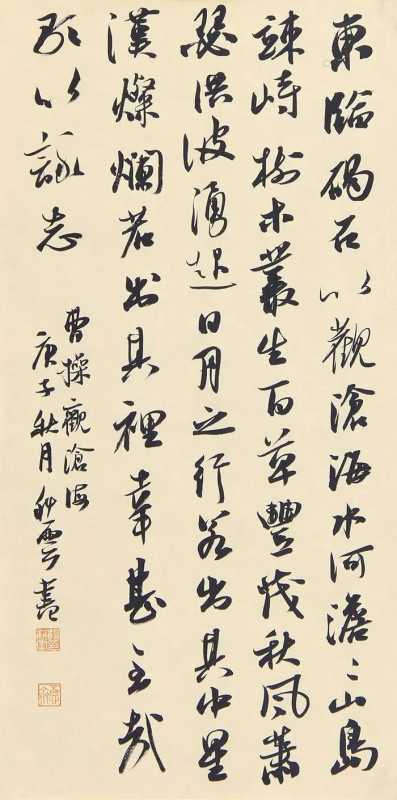 東臨碣石以觀滄海水河澹〻山島
竦峙樹木叢生百草豐茂秋風蕭
瑟洪波湧起日月之行若出其中星
漢燦爛若出其裡幸甚至哉
歌以詠志
曹操觀滄海
庚子秋月 秋雲書